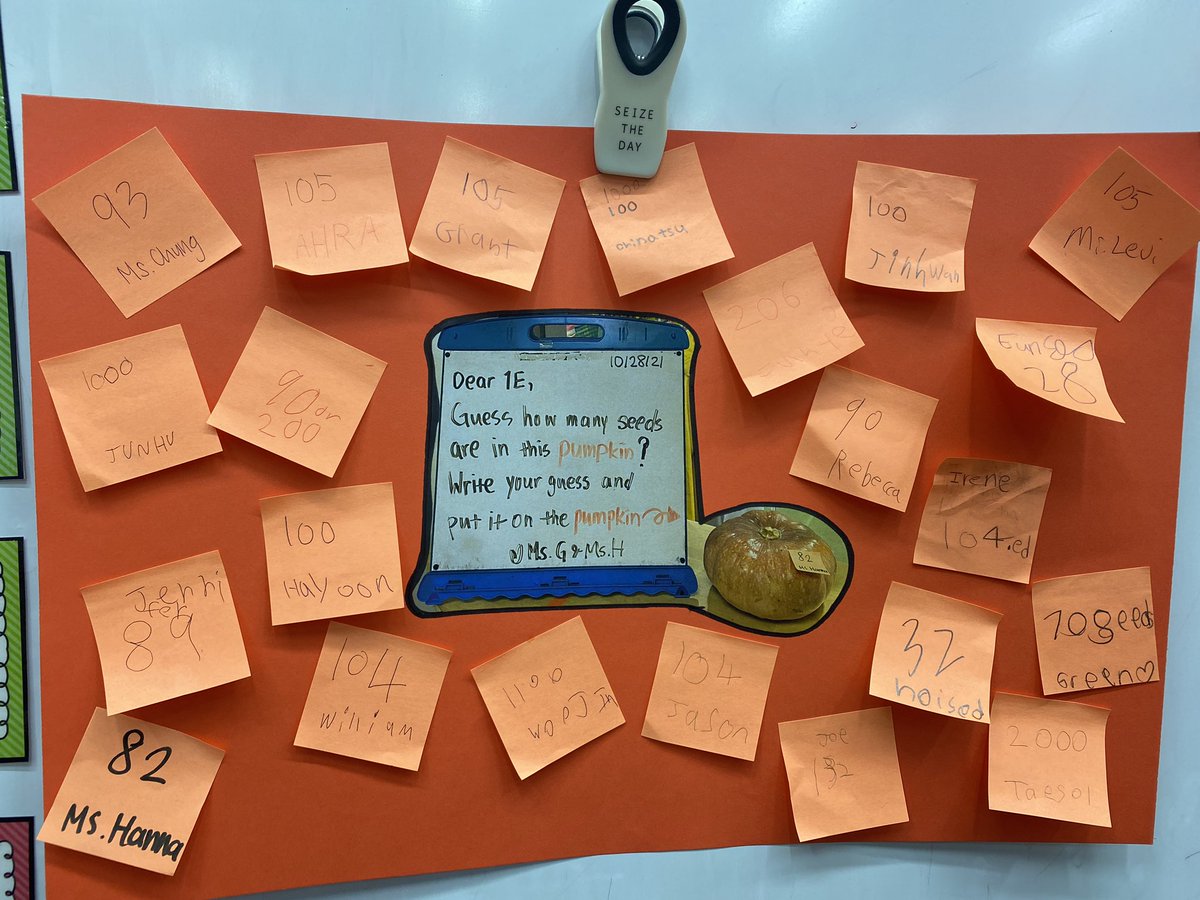 SEIZE
THE
DAY
93
Ms. Chung
105
AHRA
105
Grant
100
arinatsu
100
Jinhwan
105
Mr. Levi
1000
JUNHU
90 or
200
206
Eunsoo
28
10/28/21
Dear 1E,
Guess how many seeds
are in this pumpkin?
Write your guess and
put it on the pumpkin
Ms. G & Ms. H
82
90
Rebecca
Irene
104.ed
100
HAYOON
Jenni
fer
89
104
William
1100
woo Jin
104
Jason
32
hoised
70 seeds
Green
82
Ms. Hanna
Joe
132
2000
Taesol